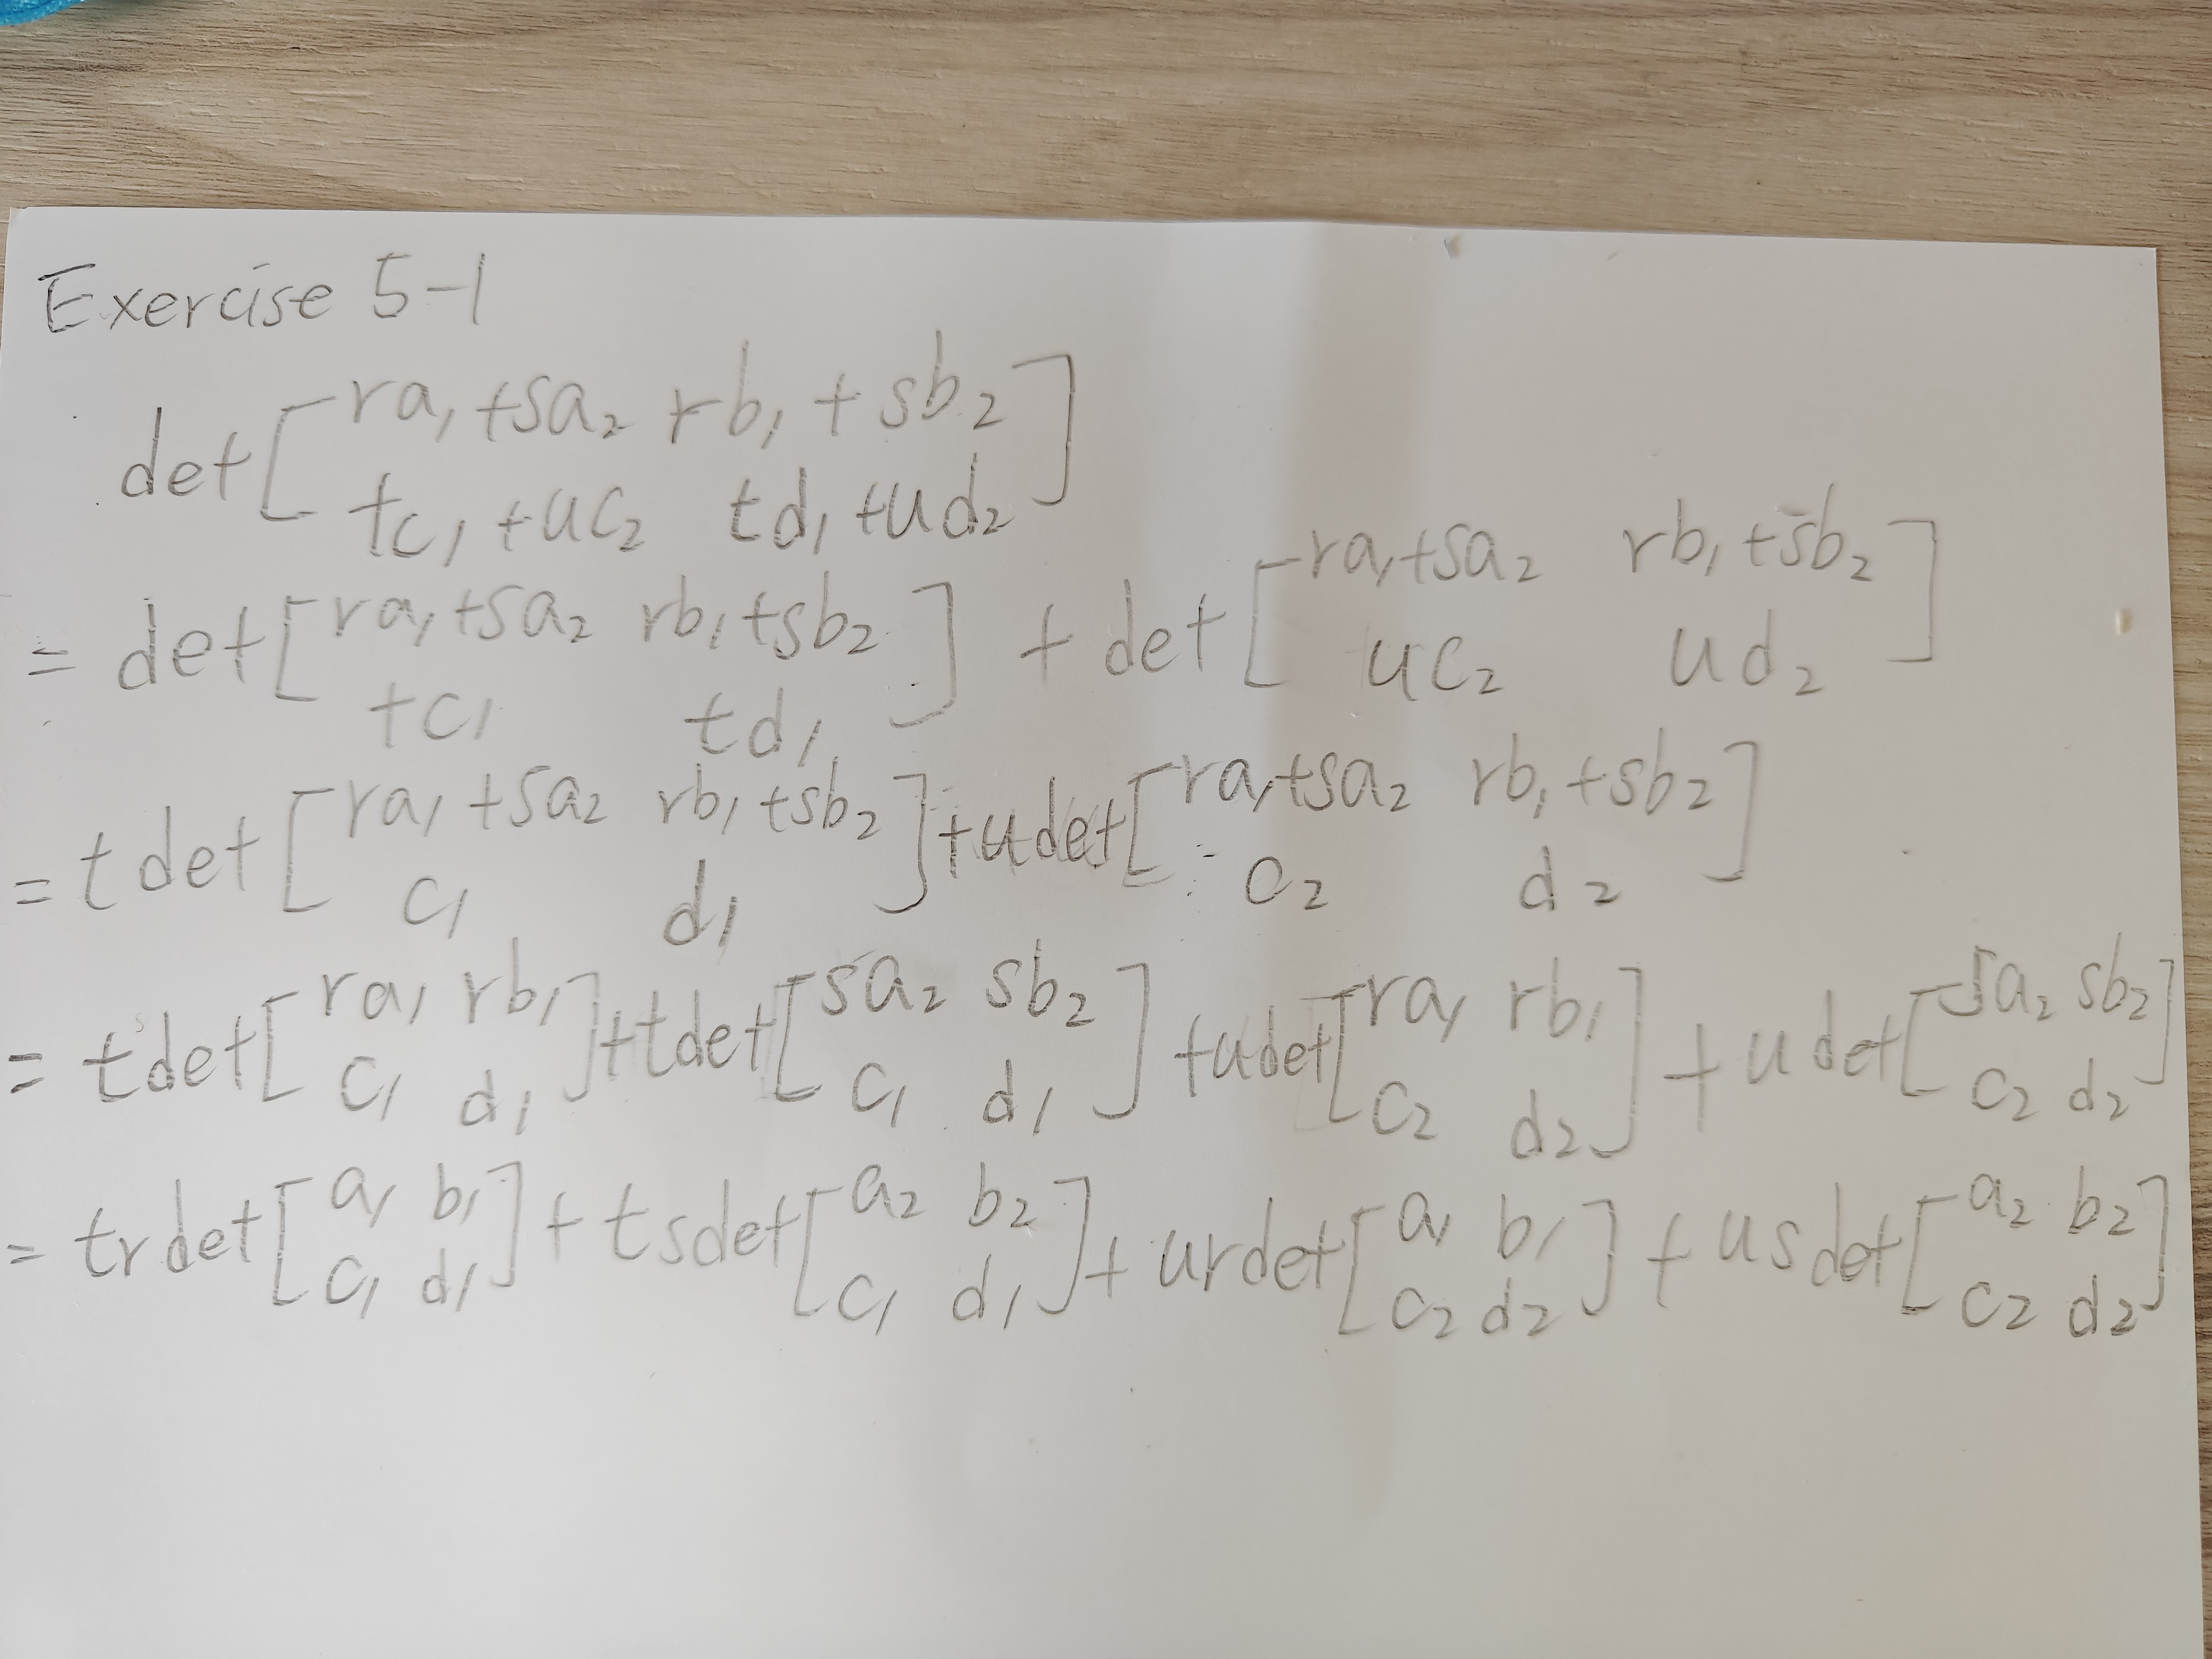 Exercise 5-1
det[ra₁+sa₂ rb₁+sb₂
tc₁+uc₂ td₁+ud₂]
= det[ra₁+sa₂ rb₁+sb₂
tc₁ td₁] + det[ra₁+sa₂ rb₁+sb₂
uc₂ ud₂]
= t det[ra₁+sa₂ rb₁+sb₂
c₁ d₁]+u det[ra₁+sa₂ rb₁+sb₂
c₂ d₂]
= t det[ra₁ rb₁
c₁ d₁]+t det[sa₂ sb₂
c₁ d₁]+u det[ra₁ rb₁
c₂ d₂]+u det[sa₂ sb₂
c₂ d₂]
= tr det[a₁ b₁
c₁ d₁]+ts det[a₂ b₂
c₁ d₁]+ur det[a₁ b₁
c₂ d₂]+us det[a₂ b₂
c₂ d₂]